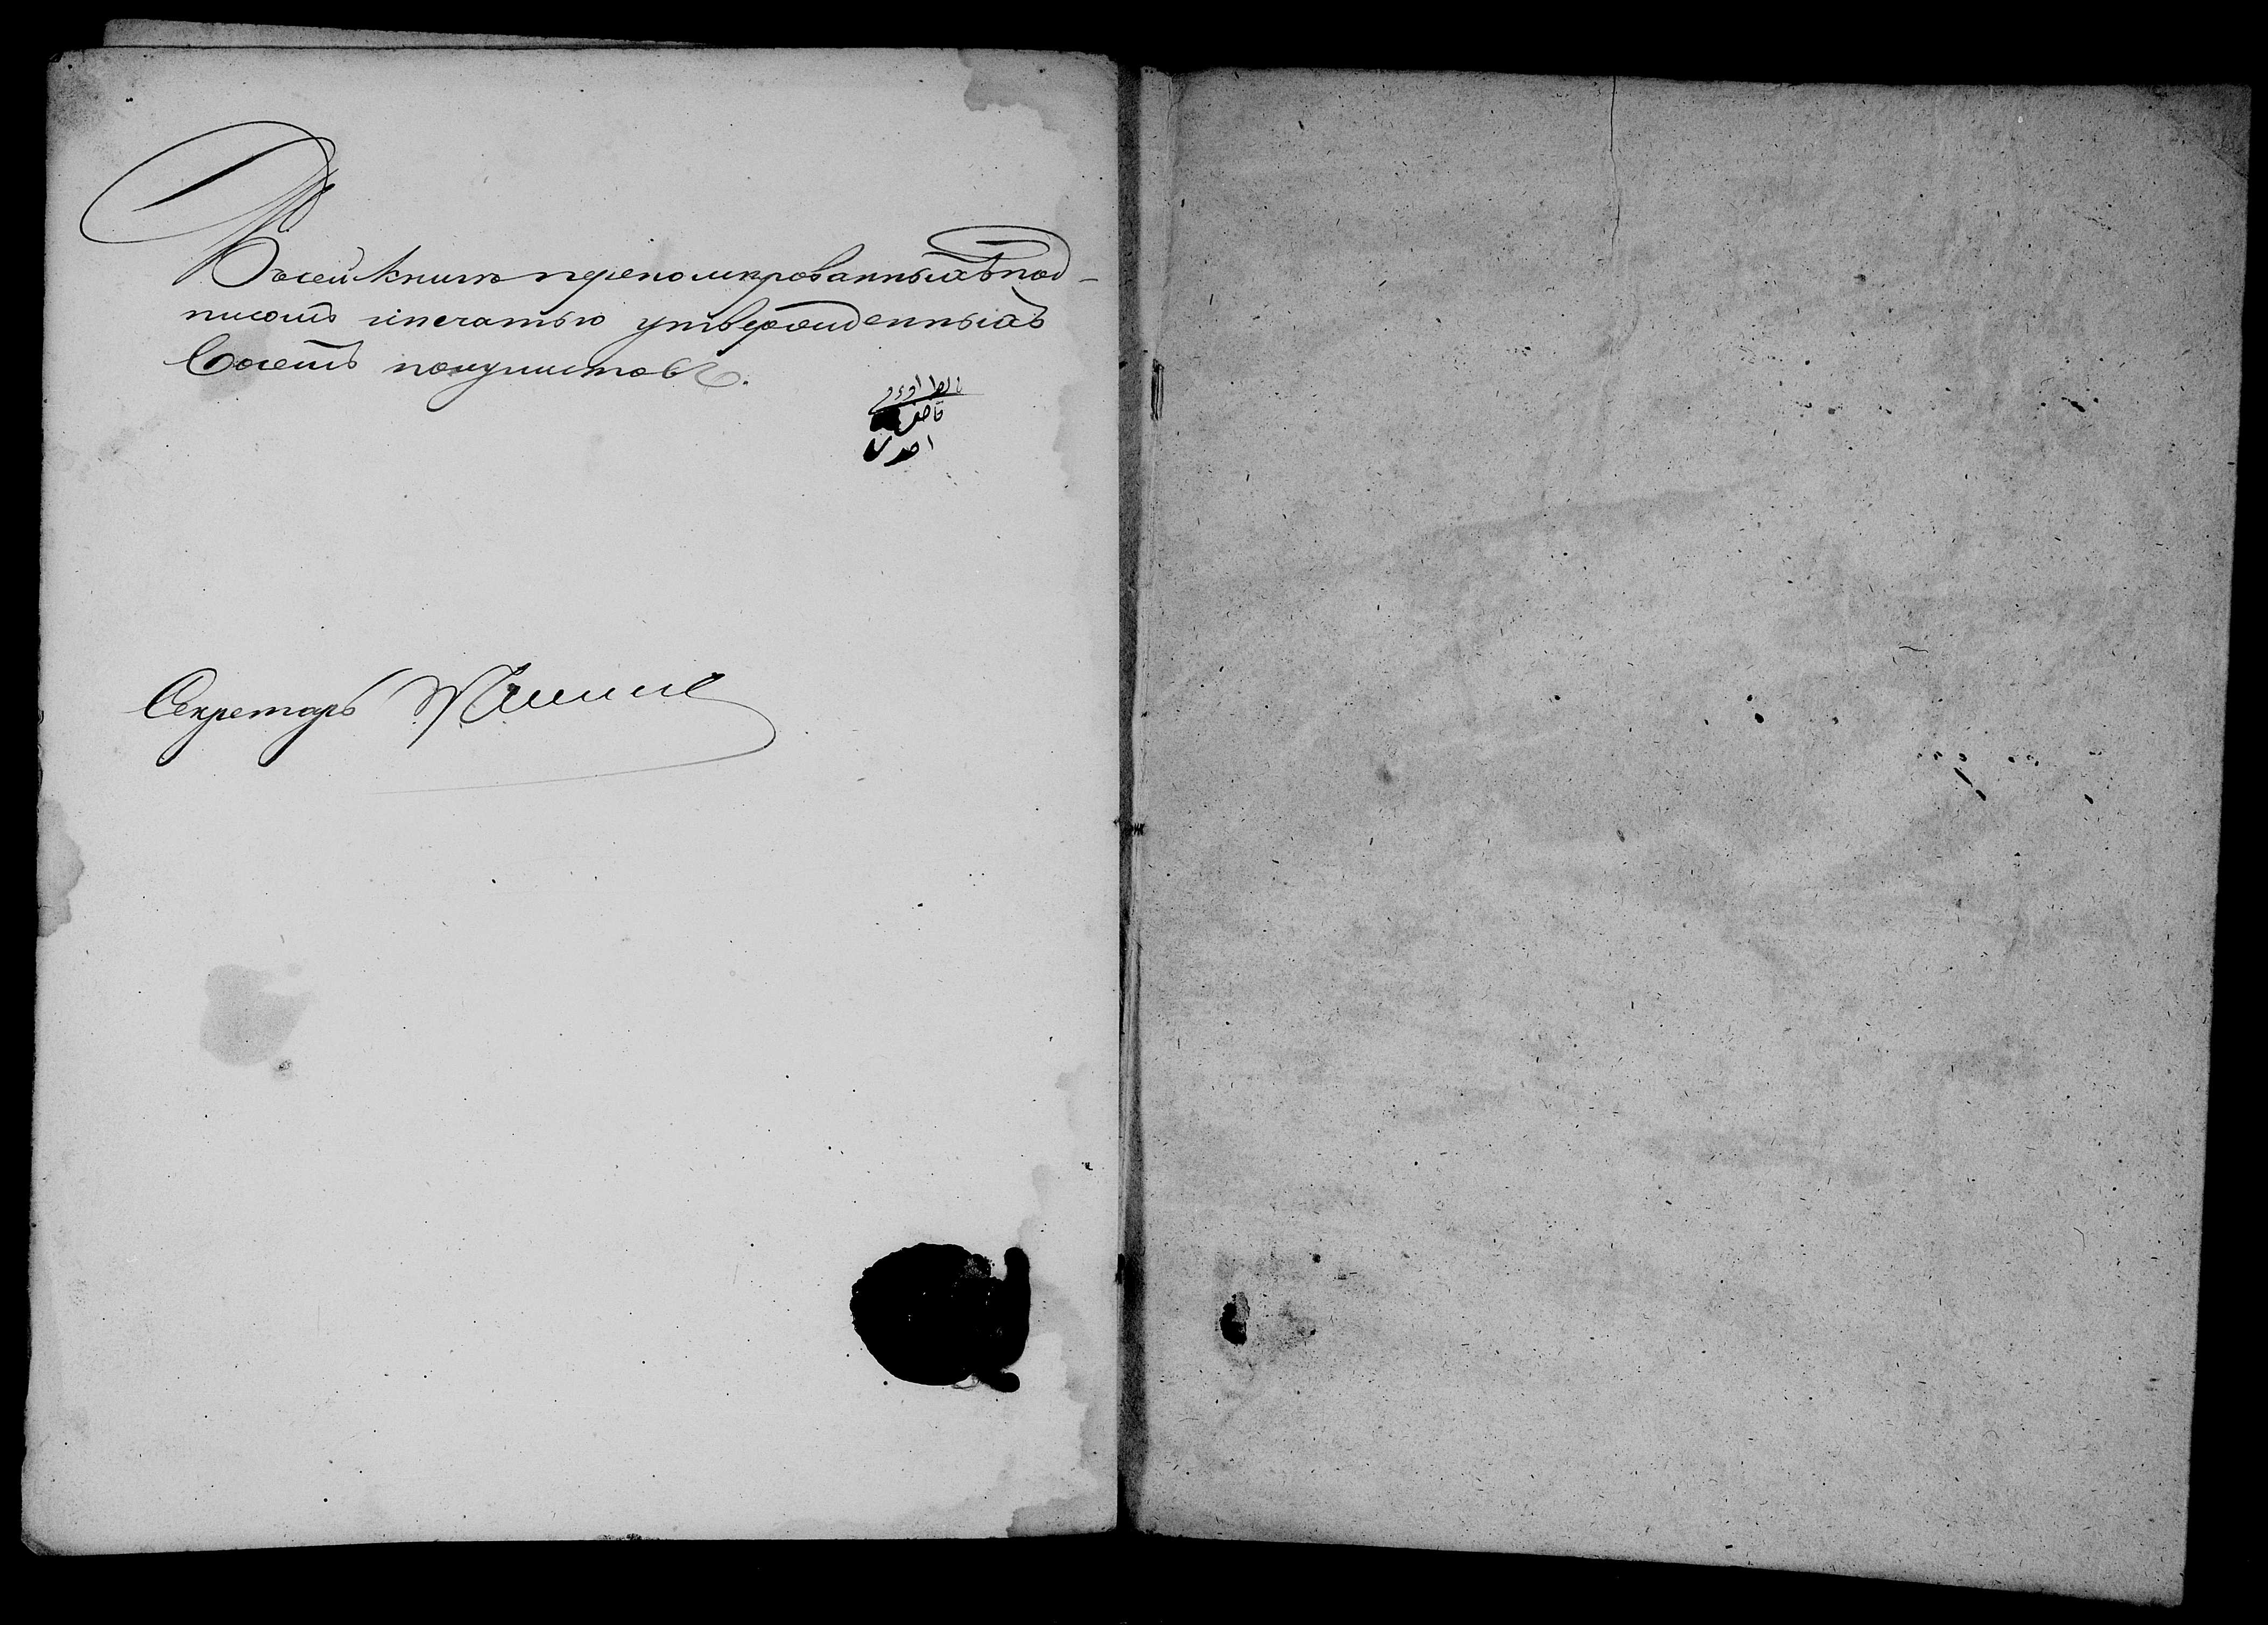 Въ сей книгѣ перенумерованныхъ под-
писомъ и печатью утвержденныхъ
восемь полулистовъ.
Секретарь